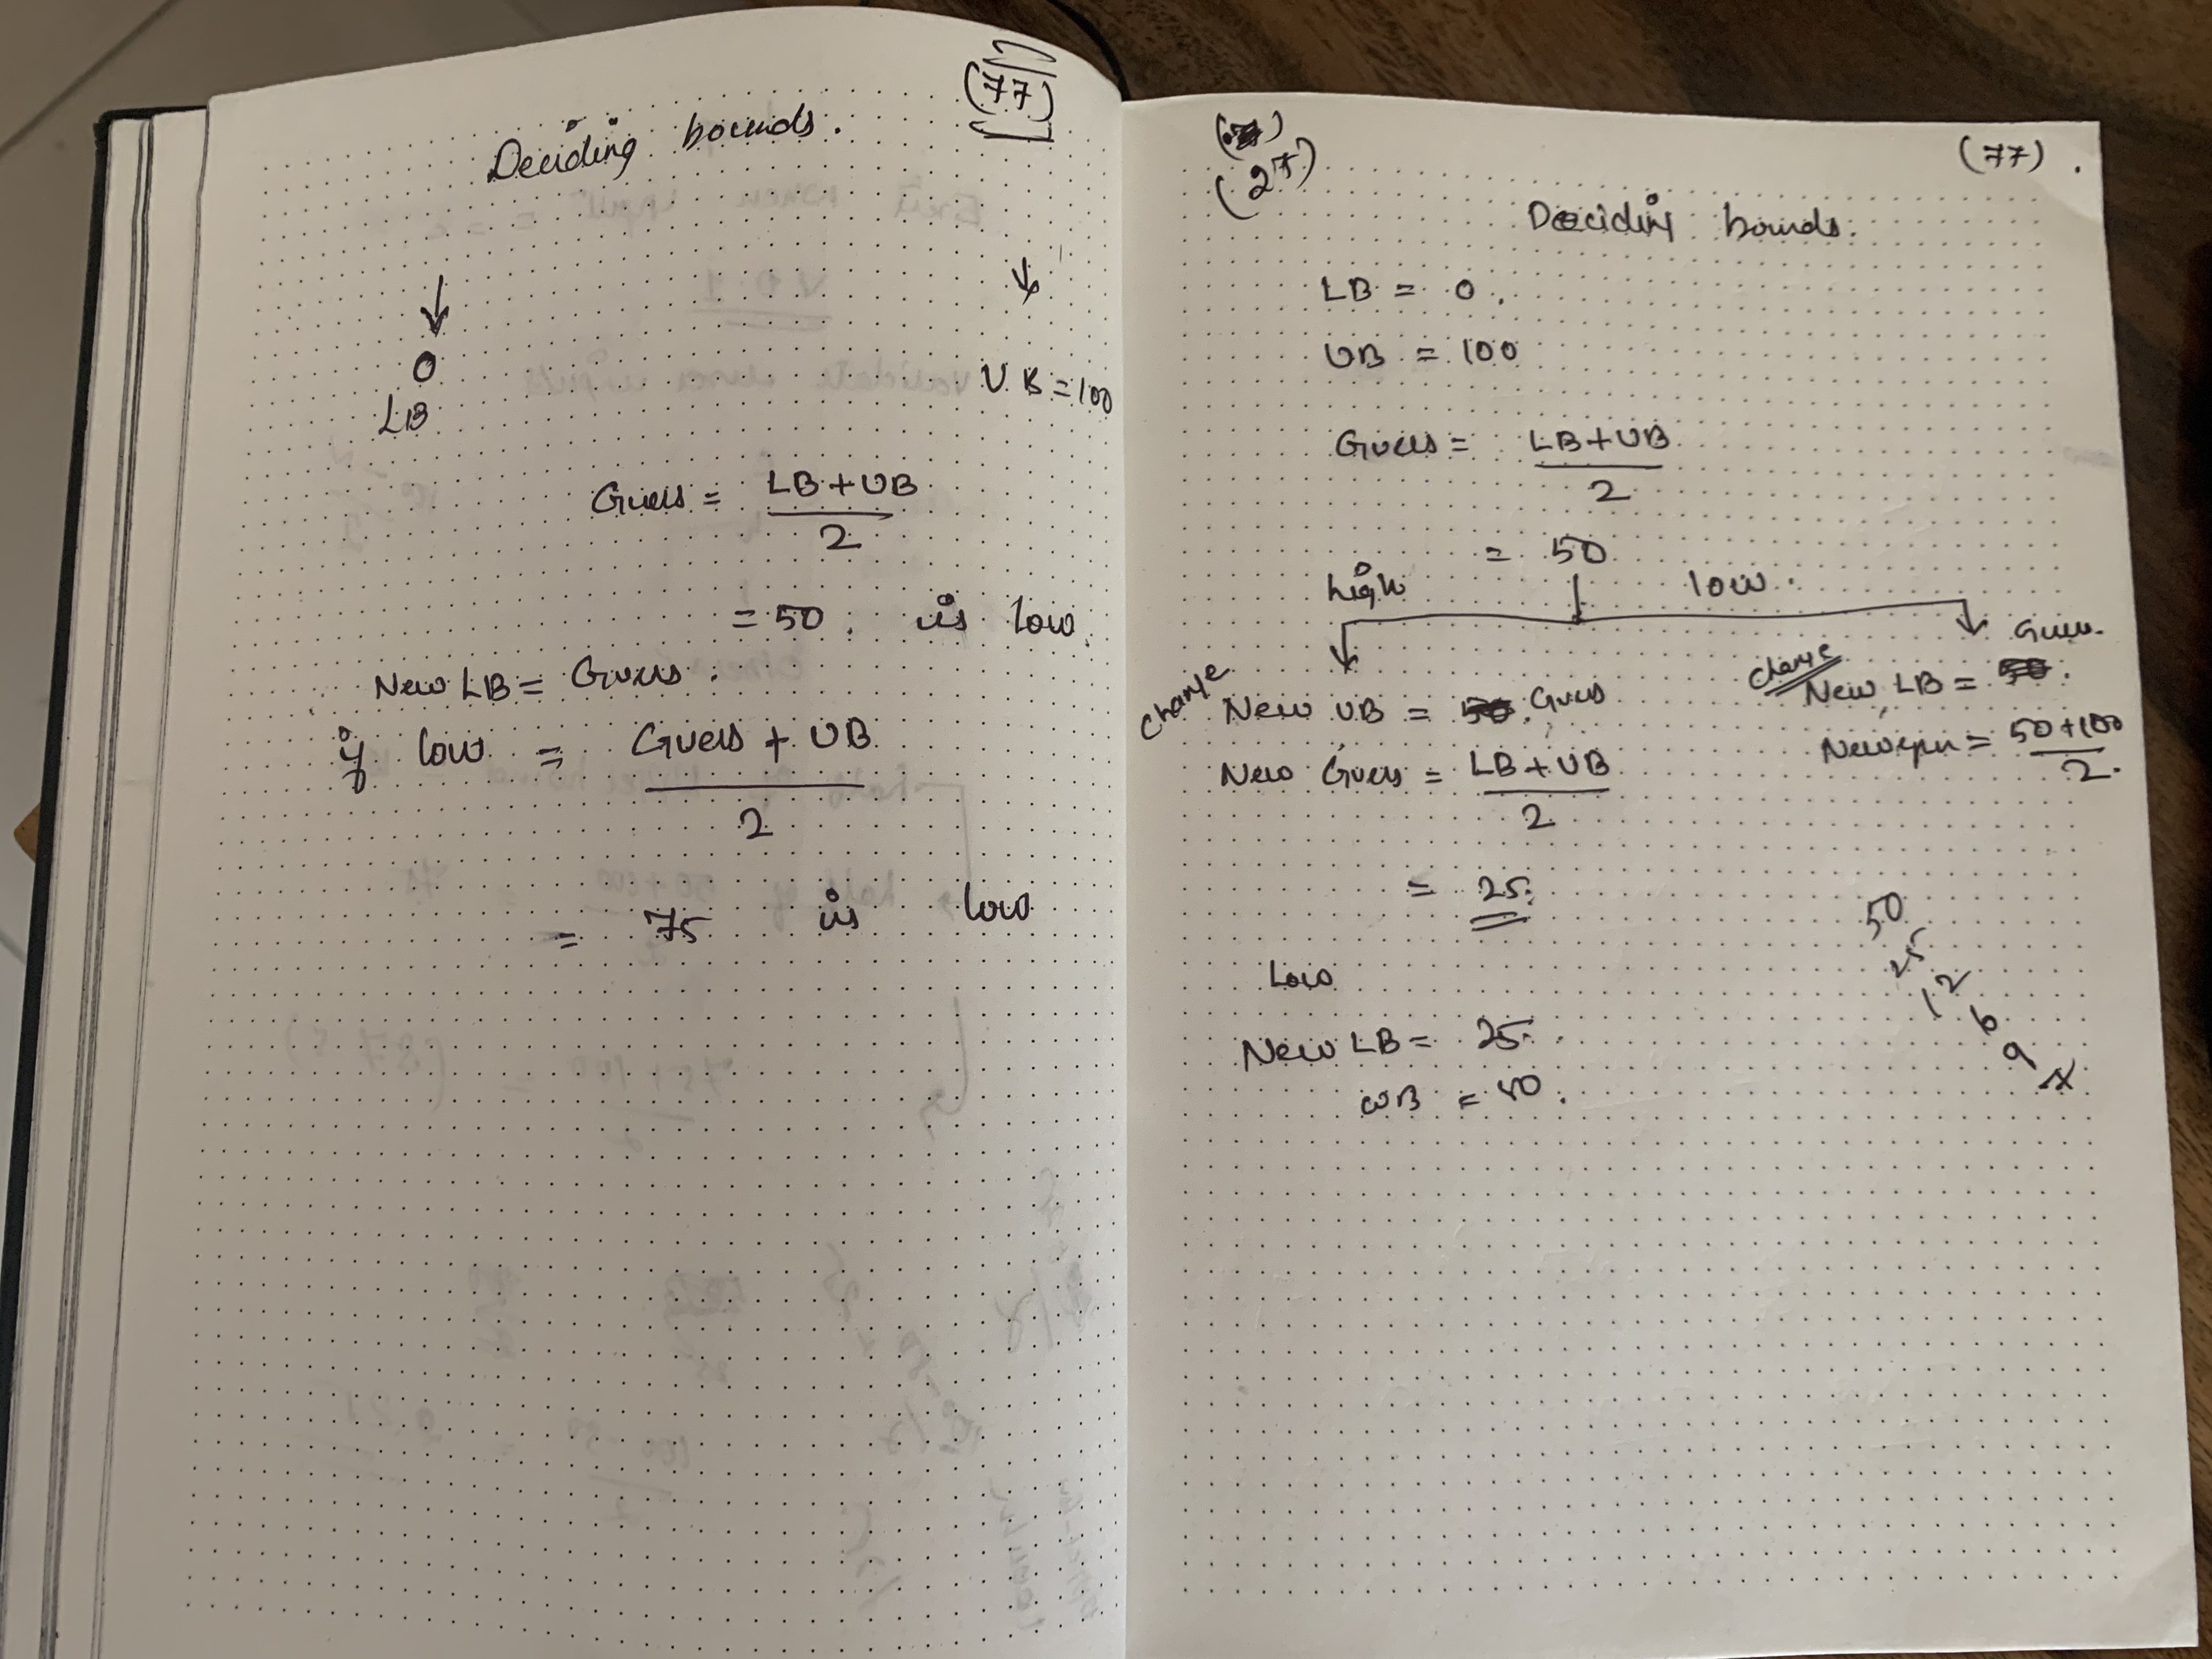 (77)
Deciding bounds.
0
LB
U.B = 100
Guess = LB + UB
2
= 50. is low.
New LB = Guess.
if low = Guess + UB
2
= 75 is low
(27)
(77).
Deciding bounds.
LB = 0.
UB = 100
Guess = LB + UB
2
= 50
high low.
Change New UB = Guess
New Guess = LB + UB
2
= 25.
Change New LB = Guess.
New = 50 + 100
2.
Low
New LB = 25.
50
25
12